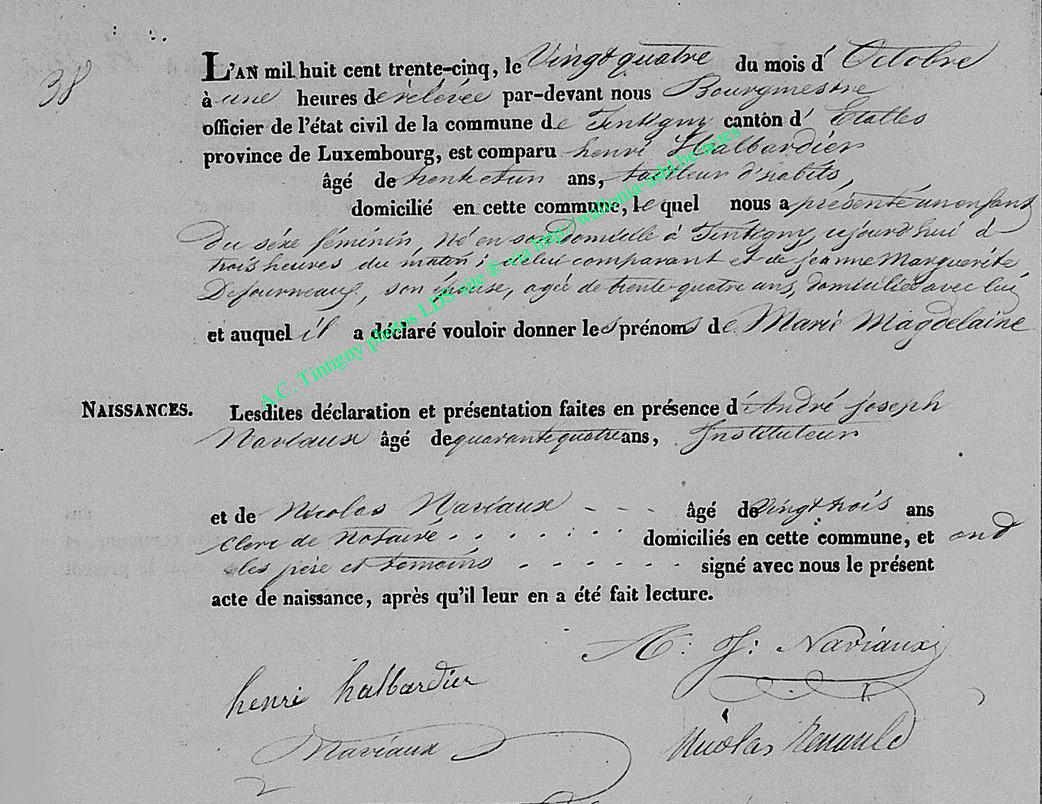 38
L'AN mil huit cent trente-cinq, le Vingt quatre du mois d'Octobre
à une heures de rélevée par-devant nous Bourgmestre
officier de l'état civil de la commune de Tintigny canton d'Etalles
province de Luxembourg, est comparu henri Halbardier
âgé de trente et un ans, tailleur d'habits,
domicilié en cette commune, le quel nous a présenté un enfant
Du séxe féminin, Né en son domicille à Tintigny, cejourdhui à
trois heures du matin; de lui comparant et de Jeanne Marguerite
Dejourneaux, son épouse, agée de trente quatre ans, domiciliée avec lui,
et auquel il a déclaré vouloir donner les prénoms de Marie Magdelaine
NAISSANCES.
Lesdites déclaration et présentation faites en présence d'André Joseph
Naviaux âgé de quarante quatre ans, Instituteur
et de Nicolas Naviaux - - - âgé de vingt trois ans
Clerc de Notaire . . . . . . . domiciliés en cette commune, et ont
les père et temoins - - - - - - signé avec nous le présent
acte de naissance, après qu'il leur en a été fait lecture.
A: J: Naviaux
henri halbardier
Naviaux
Nicolas
A.C. Tintigny photos LHS-site ® via http://wallonia-asbl.be/actes